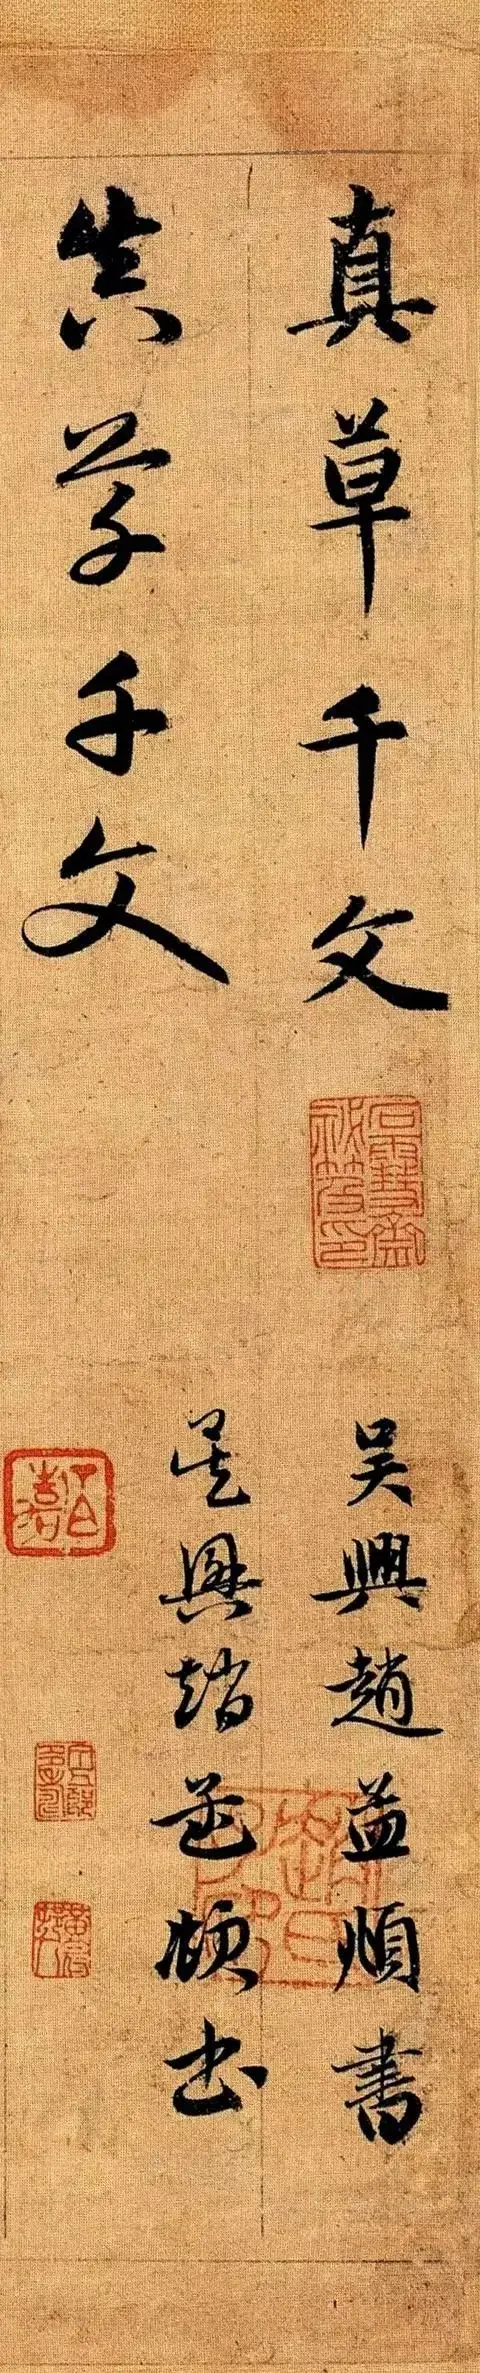 真草千文
吳興趙孟頫書
真草千文
吳興趙孟頫書